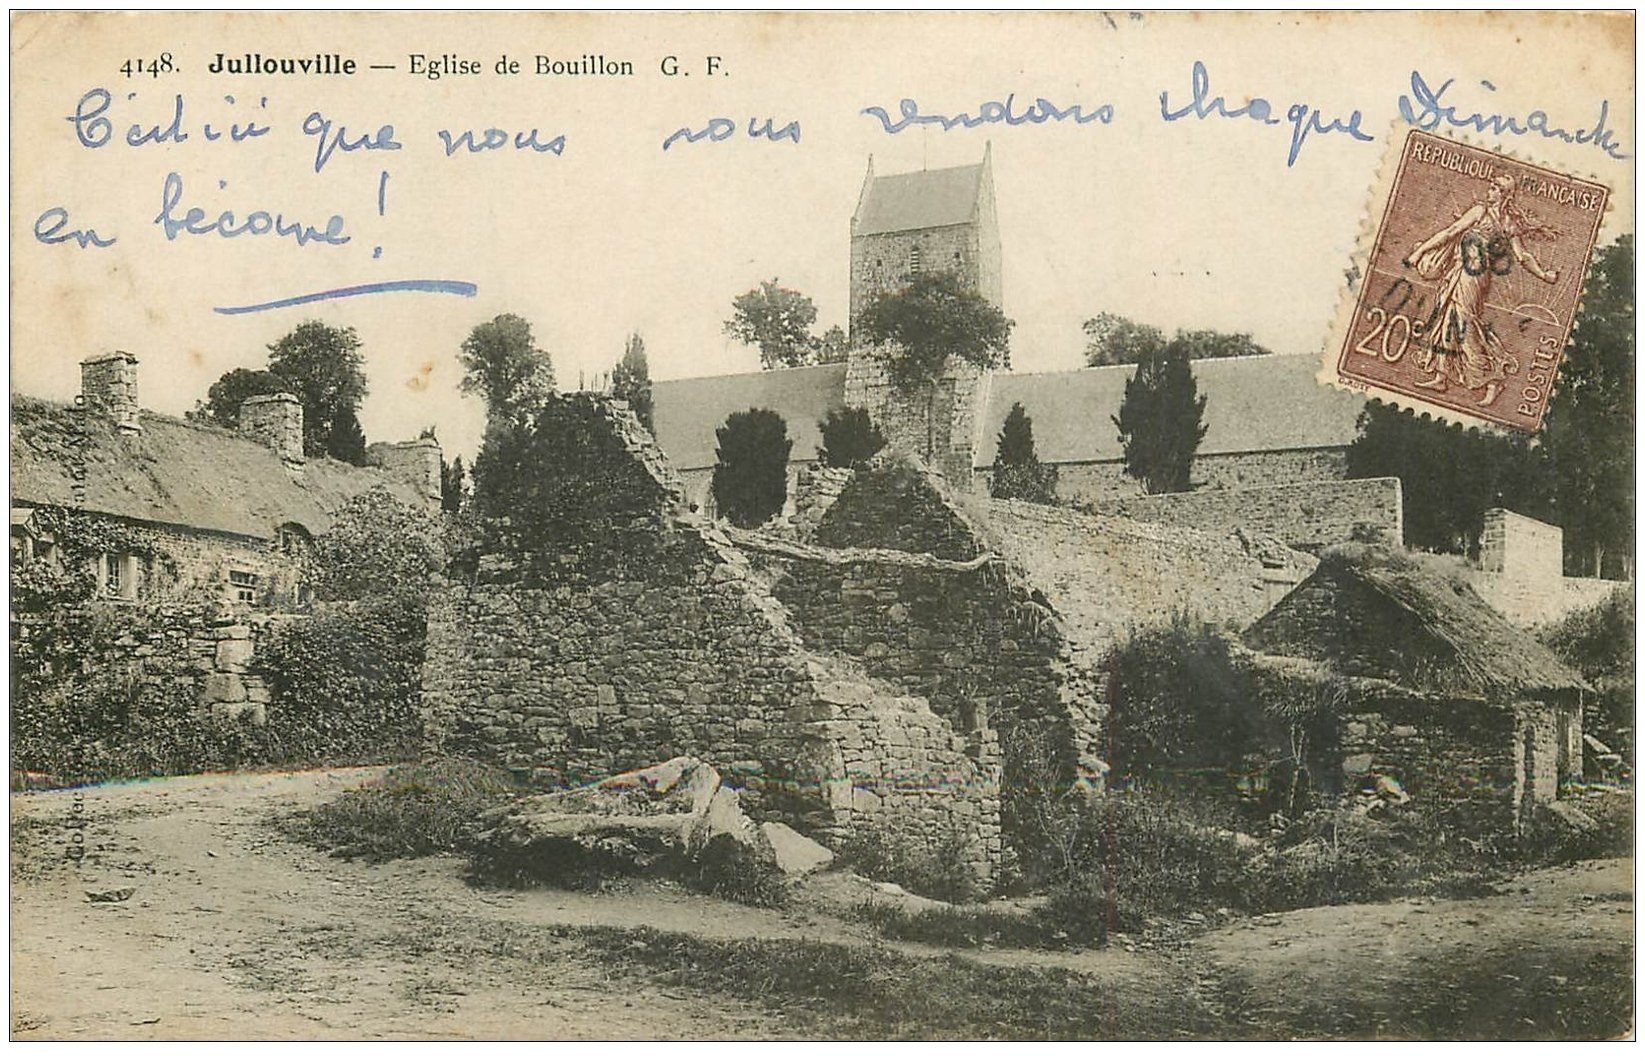 4148. Jullouville — Eglise de Bouillon G. F.
C'est ici que nous nous rendons chaque Dimanche
en bécane !
REPUBLIQUE FRANÇAISE
20c
POSTES
08